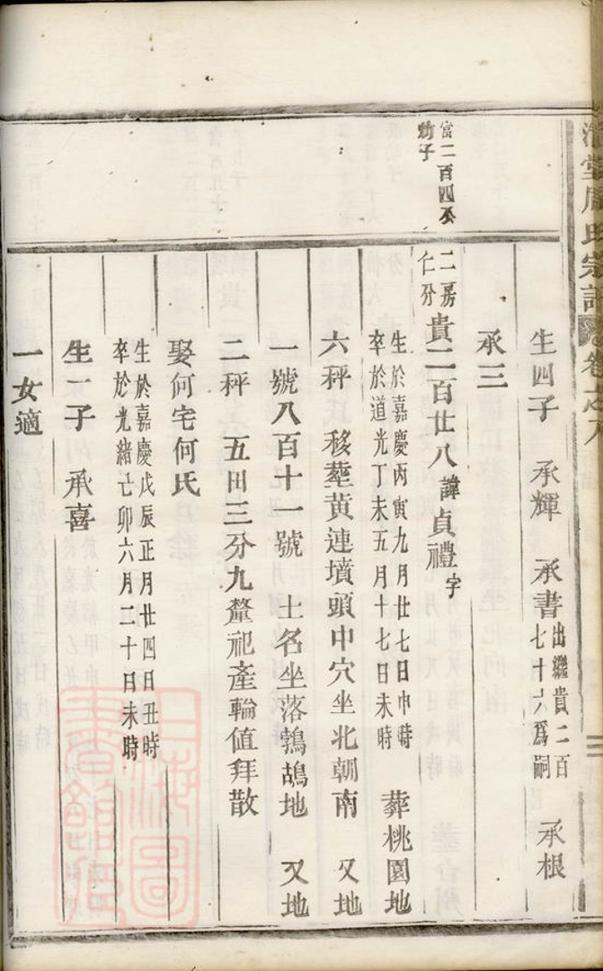 周氏宗譜 卷之八
三
生四子 承輝 承書 出繼貴二百
七十六爲嗣 承根
承三
富二百四公
幼子
二房
仁分 貴二百廿八 諱貞禮 字
生於嘉慶丙寅九月廿七日巾時
卒於道光丁未五月十七日未時 葬桃園地
六秤 移塟黄連墳頭中穴坐北朝南 又地
一號八百十一號 土名坐落鶉鴣地 又地
二秤 五田三分九釐祀產輪值拜散
娶何宅何氏
生於嘉慶戊辰正月廿四日丑時
卒於光緒己卯六月二十日未時
生一子 承喜
一女適
上海圖書館藏